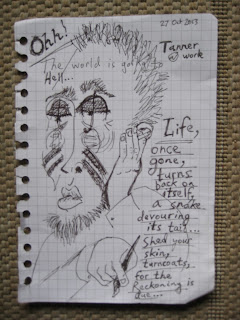 Ohh!
27 Oct 2013
Tanner
@ work
The world is going to
Hell...
Life,
once
gone,
turns
back on
itself,
a snake
devouring
its tail...
Shed your
skins,
turncoats,
for the
Reckoning is
due...